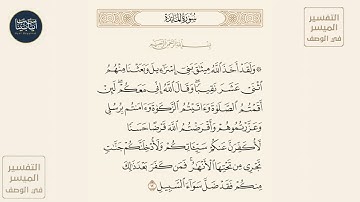 سُورَةُ المَائِدَةِ
بِسْمِ اللَّهِ الرَّحْمَٰنِ الرَّحِيمِ
۞ وَلَقَدْ أَخَذَ ٱللَّهُ مِيثَٰقَ بَنِىٓ إِسْرَٰٓءِيلَ وَبَعَثْنَا مِنْهُمُ
ٱثْنَىْ عَشَرَ نَقِيبًا وَقَالَ ٱللَّهُ إِنِّى مَعَكُمْ لَئِنْ
أَقَمْتُمُ ٱلصَّلَوٰةَ وَءَاتَيْتُمُ ٱلزَّكَوٰةَ وَءَامَنتُم بِرُسُلِى
وَعَزَّرْتُمُوهُمْ وَأَقْرَضْتُمُ ٱللَّهَ قَرْضًا حَسَنًا
لَّأُكَفِّرَنَّ عَنكُمْ سَيِّـَٔاتِكُمْ وَلَأُدْخِلَنَّكُمْ جَنَّٰتٍ
تَجْرِى مِن تَحْتِهَا ٱلْأَنْهَٰرُ فَمَن كَفَرَ بَعْدَ ذَٰلِكَ
مِنكُمْ فَقَدْ ضَلَّ سَوَآءَ ٱلسَّبِيلِ
التفسير
الميسر
في الوصف
التفسير
الميسر
في الوصف